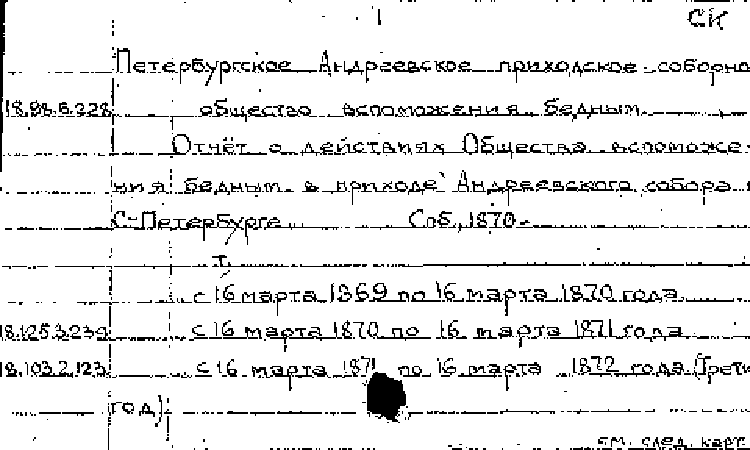 1 СК
Петербургское Андреевское приходское соборно
18.88.6.228 общество вспоможения бедным.
Отчёт о действиях Общества вспоможе-
ния бедным в приходе Андреевского собора в
С-Петербурге Спб., 1870-
т.
с 16 марта 1869 по 16 марта 1870 года.
18.125.3.230 с 16 марта 1870 по 16 марта 1871 года
18.103.2.123 с 16 марта 1871 по 16 марта 1872 года (Трети
год).
см. след. карт